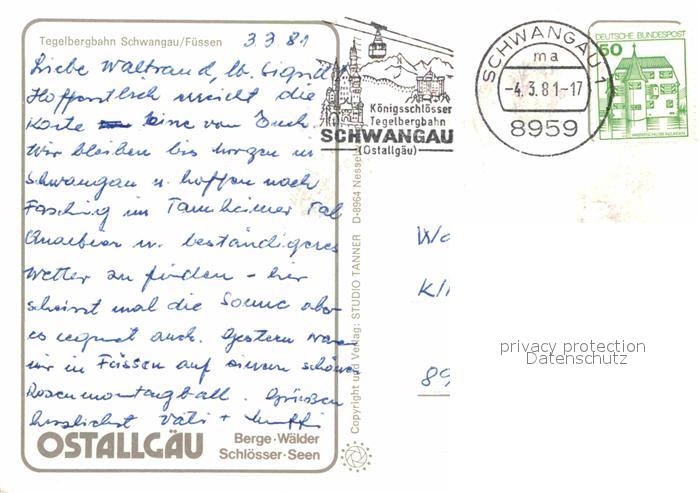 Tegelbergbahn Schwangau/Füssen 3.3.81
Liebe Waltraud, lb. Sigrid
Hoffentlich erreicht die
Karte eine von Euch.
Wir bleiben bis morgen in
Schwangau u. hoffen nach
Fasching im Tannheimer Tal
u. beständigeres
Wetter zu finden - hier
scheint mal die Sonne aber
es regnet auch. Gestern waren
wir in Füssen auf einem schönen
Rosenmontagball. Grüßen
herzlichst Vati + Mutti
OSTALLGÄU
Berge·Wälder
Schlösser·Seen
Copyright und Verlag: STUDIO TANNER D-8964 Nessel
Königsschlösser
Tegelbergbahn
SCHWANGAU
(Ostallgäu)
SCHWANGAU 1
ma
-4.3.81-17
8959
DEUTSCHE BUNDESPOST
50
Wa
Kli
89
privacy protection
Datenschutz